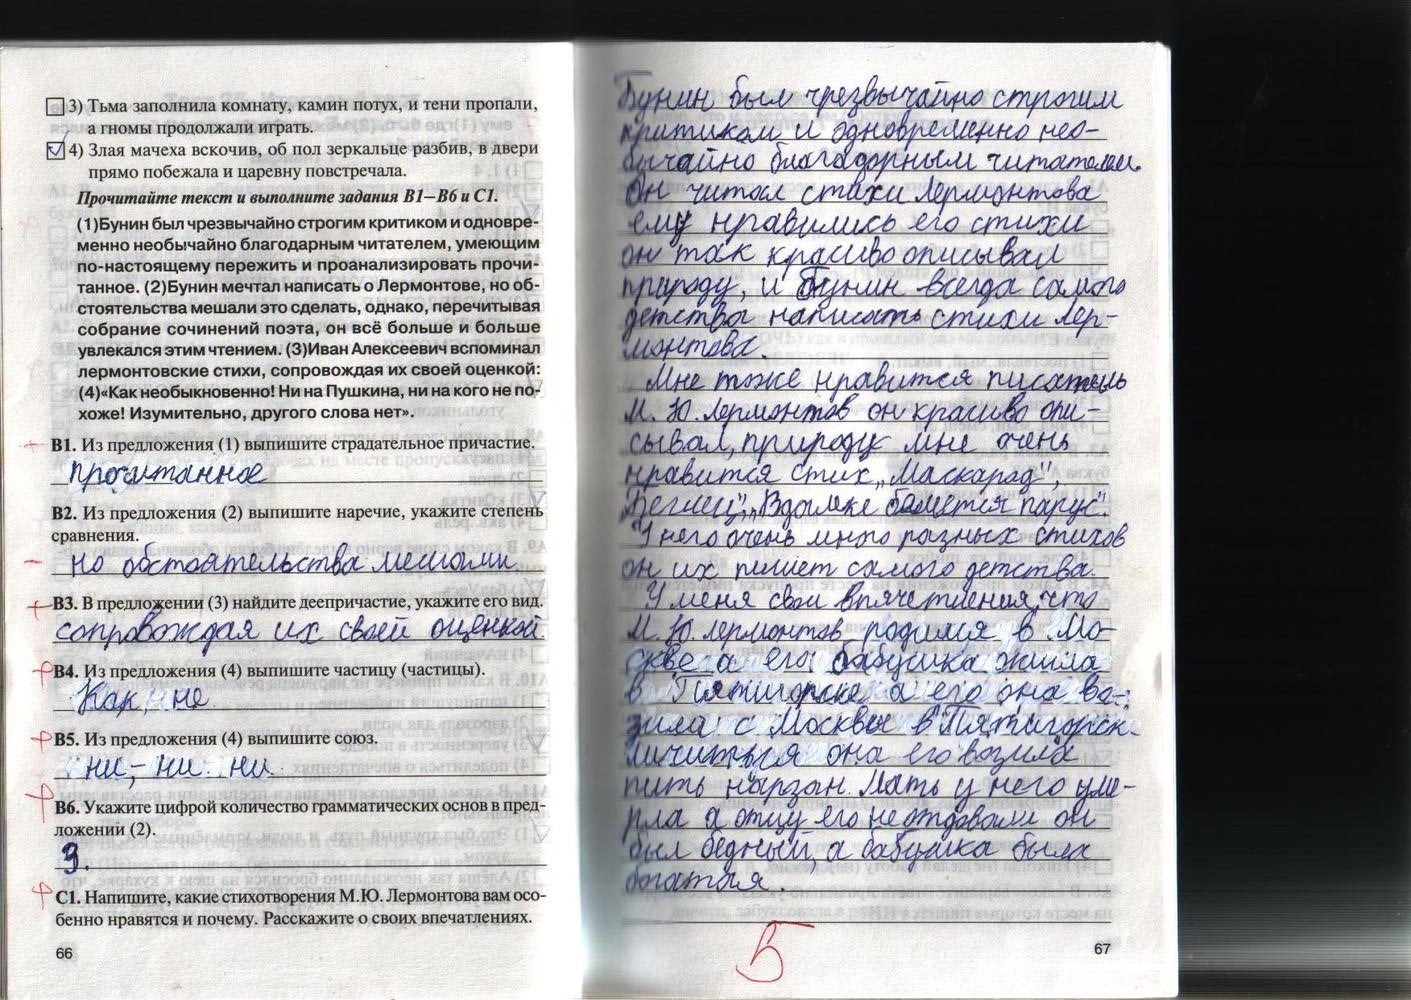 3) Тьма заполнила комнату, камин потух, и тени пропали,
а гномы продолжали играть.
4) Злая мачеха вскочив, об пол зеркальце разбив, в двери
прямо побежала и царевну повстречала.
Прочитайте текст и выполните задания В1—В6 и С1.
(1)Бунин был чрезвычайно строгим критиком и одновре-
менно необычайно благодарным читателем, умеющим
по-настоящему пережить и проанализировать прочи-
танное. (2)Бунин мечтал написать о Лермонтове, но об-
стоятельства мешали это сделать, однако, перечитывая
собрание сочинений поэта, он всё больше и больше
увлекался этим чтением. (3)Иван Алексеевич вспоминал
лермонтовские стихи, сопровождая их своей оценкой:
(4)«Как необыкновенно! Ни на Пушкина, ни на кого не по-
хоже! Изумительно, другого слова нет».
В1. Из предложения (1) выпишите страдательное причастие.
прочитанное
В2. Из предложения (2) выпишите наречие, укажите степень
сравнения.
но обстоятельства мешами
В3. В предложении (3) найдите деепричастие, укажите его вид.
сопровождая их своей оценкой.
В4. Из предложения (4) выпишите частицу (частицы).
Как, не
В5. Из предложения (4) выпишите союз.
ни,- ни. ни
В6. Укажите цифрой количество грамматических основ в пред-
ложении (2).
3.
С1. Напишите, какие стихотворения М.Ю. Лермонтова вам осо-
бенно нравятся и почему. Расскажите о своих впечатлениях.
66
Бунин был чрезвычайно строгим
критиком и одновременно нео-
бычайно благодарным читателем.
Он читал стихи Лермонтова
ему нравились его стихи
он так красиво описывал
природу, и Бунин всегда самого
детства написать стихи Лер-
монтова.
Мне тоже нравится писатель
М. Ю. Лермонтов он красиво опи-
сывал, природу мне очень
нравится стих „Маскарад",
Беглец", „Вдалеке балеется парус".
У него очень много разных стихов
он их пишет самого детства.
У меня свои впячетления, что
М. Ю. Лермонтов родился в Мо-
скве а его бабушка жила
в Пятигорске а его она ва-
зила с Москвы в Пятигорск
личиться она его возила
пить нарзан. Мать у него уме-
рла а отцу его не отдовали он
был бедный, а бабушка была
богатыя.
5
67